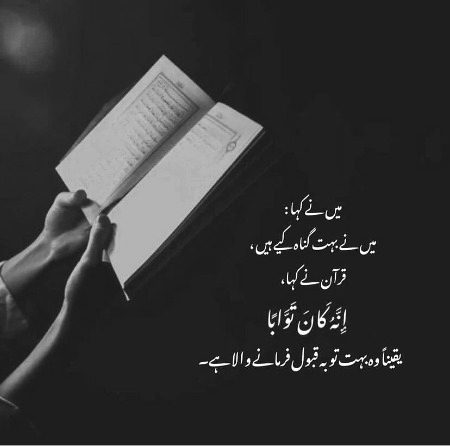 میں نے کہا:
میں نے بہت گناہ کیے ہیں،
قرآن نے کہا،
إِنَّهُ كَانَ تَوَّابًا
یقیناً وہ بہت توبہ قبول فرمانے والا ہے۔